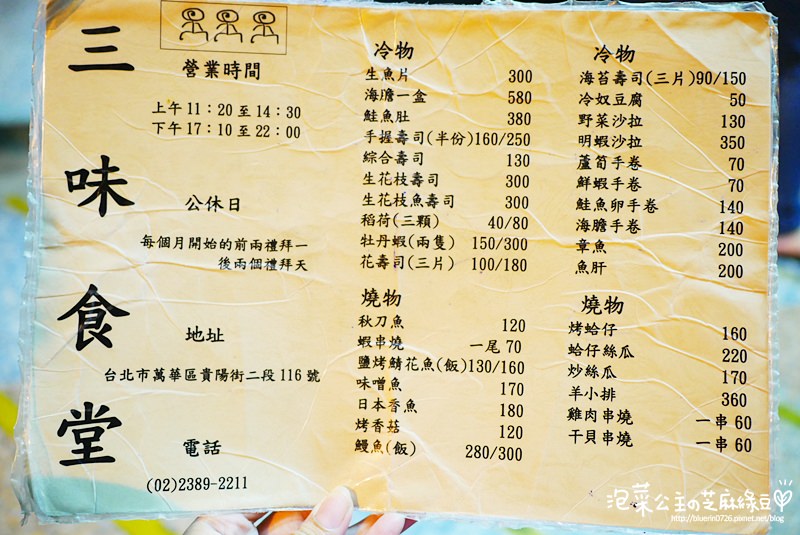 三味食堂
營業時間
上午11：20至14：30
下午17：10至22：00
公休日
每個月開始的前兩禮拜一
後兩個禮拜天
地址
台北市萬華區貴陽街二段116號
電話
(02)2389-2211
冷物
生魚片 300
海膽一盒 580
鮭魚肚 380
手握壽司(半份)160/250
綜合壽司 130
生花枝壽司 300
生花枝魚壽司 300
稻荷(三顆) 40/80
牡丹蝦(兩隻) 150/300
花壽司(三片) 100/180
燒物
秋刀魚 120
蝦串燒 一尾70
鹽烤鯖花魚(飯)130/160
味噌魚 170
日本香魚 180
烤香菇 120
鰻魚(飯) 280/300
冷物
海苔壽司(三片)90/150
冷奴豆腐 50
野菜沙拉 130
明蝦沙拉 350
蘆筍手卷 70
鮮蝦手卷 70
鮭魚卵手卷 140
海膽手卷 140
章魚 200
魚肝 200
燒物
烤蛤仔 160
蛤仔絲瓜 220
炒絲瓜 170
羊小排 360
雞肉串燒 一串60
干貝串燒 一串60
泡菜公主の芝麻綠豆
http://bluerin0726.pixnet.net/blog